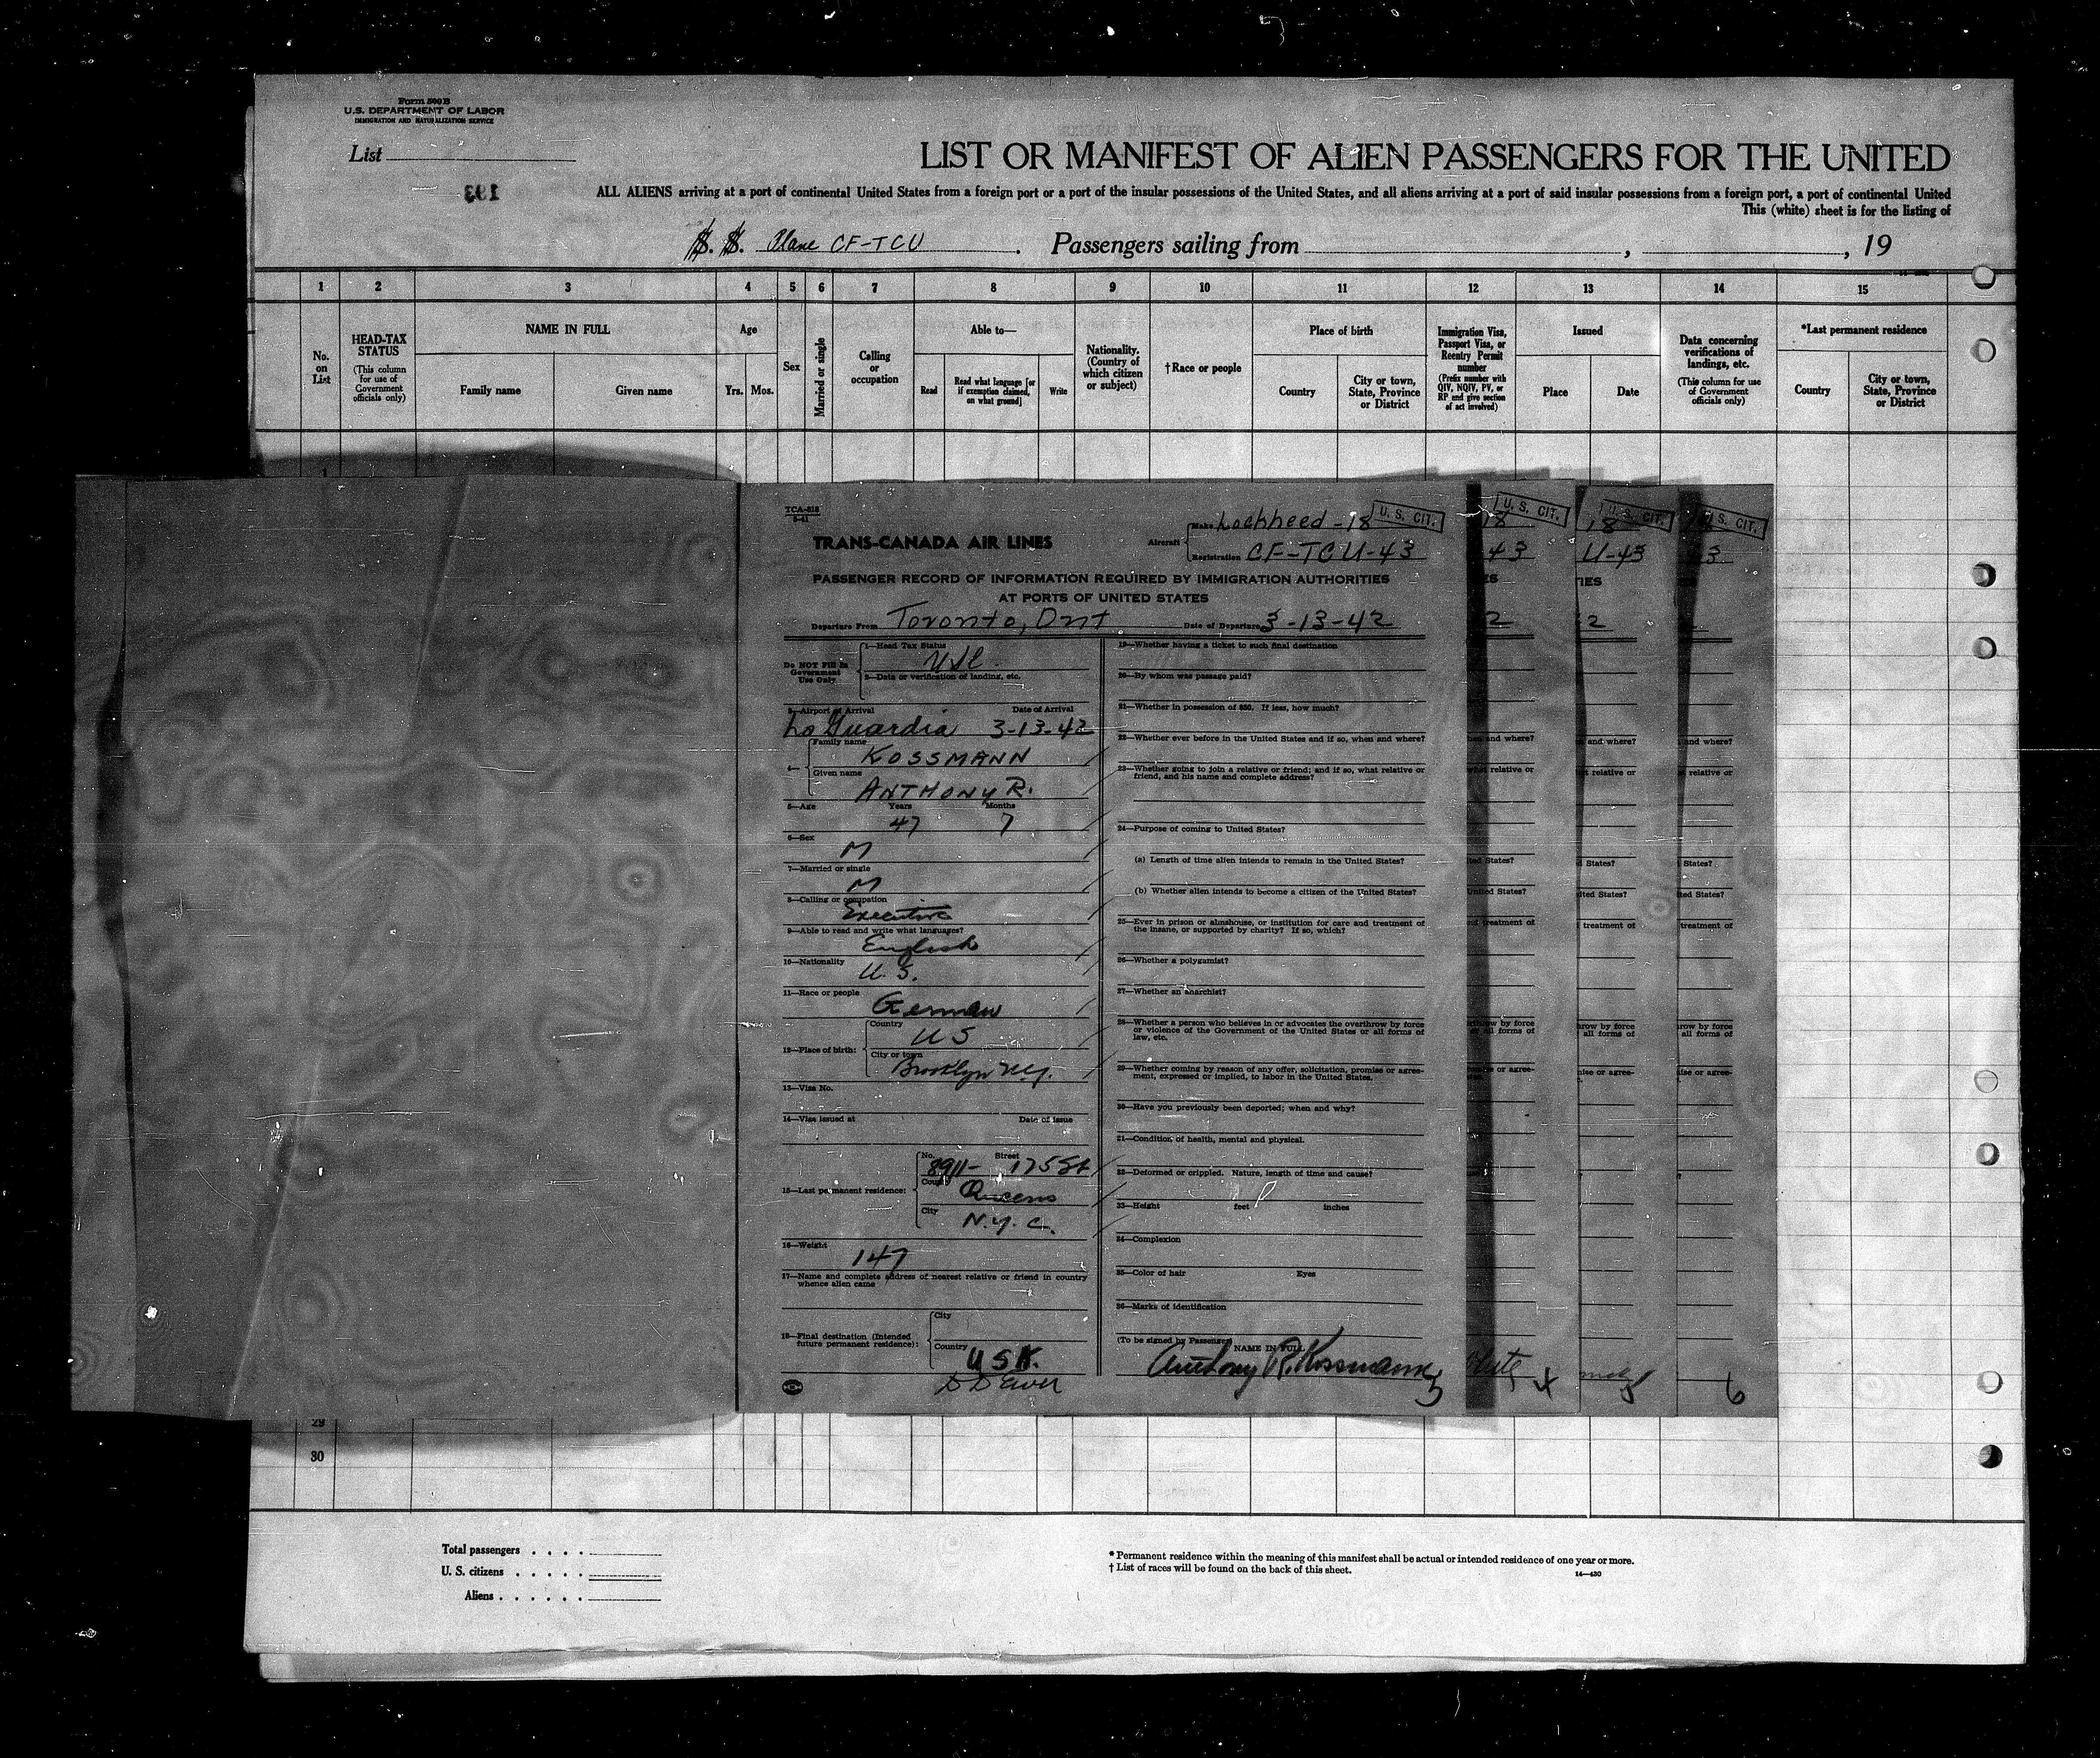 Form 500 B
U.S. DEPARTMENT OF LABOR
IMMIGRATION AND NATURALIZATION SERVICE
List
193
LIST OR MANIFEST OF ALIEN PASSENGERS FOR THE UNITED
ALL ALIENS arriving at a port of continental United States from a foreign port or a port of the insular possessions of the United States, and all aliens arriving at a port of said insular possessions from a foreign port, a port of continental United
This (white) sheet is for the listing of
S. S. Plane CF-TCU. Passengers sailing from , , 19
1 2 3 4 5 6 7 8 9 10 11 12 13 14 15
No. on List
HEAD-TAX STATUS
(This column for use of Government officials only)
NAME IN FULL
Family name Given name
Age
Yrs. Mos.
Sex
Married or single
Calling or occupation
Able to—
Read
Read what language [or if exemption claimed, on what ground]
Write
Nationality. (Country of which citizen or subject)
†Race or people
Place of birth
Country
City or town, State, Province or District
Immigration Visa, Passport Visa, or Reentry Permit number
(Prefix number with QIV, NQIV, PV, or RP and give section of act involved)
Issued
Place Date
Data concerning verifications of landings, etc.
(This column for use of Government officials only)
*Last permanent residence
Country
City or town, State, Province or District
1
TCA-818
5-41
TRANS-CANADA AIR LINES
Aircraft
Make Lockheed-18
U. S. CIT.
Registration CF-TCU-43
PASSENGER RECORD OF INFORMATION REQUIRED BY IMMIGRATION AUTHORITIES
AT PORTS OF UNITED STATES
Departure From Toronto, Ont Date of Departure 3-13-42
Do NOT Fill in Government Use Only
1—Head Tax Status
USC
2—Data or verification of landing, etc.
3—Airport of Arrival Date of Arrival
La Guardia 3-13-42
4—
Family name
KOSSMANN
Given name
ANTHONY R.
5—Age Years Months
47 7
6—Sex
M
7—Married or single
M
8—Calling or occupation
Executive
9—Able to read and write what languages?
English
10—Nationality
U.S.
11—Race or people
German
12—Place of birth:
Country
US
City or town
Brooklyn N.Y.
13—Visa No.
14—Visa issued at Date of issue
15—Last permanent residence:
No. Street
8911- 175 St
Queens
City
N.Y.C.
16—Weight
147
17—Name and complete address of nearest relative or friend in country
whence alien came
18—Final destination (Intended
future permanent residence):
City
Country
USA.
19—Whether having a ticket to such final destination
20—By whom was passage paid?
21—Whether in possession of $50. If less, how much?
22—Whether ever before in the United States and if so, when and where?
23—Whether going to join a relative or friend; and if so, what relative or
friend, and his name and complete address?
24—Purpose of coming to United States?
(a) Length of time alien intends to remain in the United States?
(b) Whether alien intends to become a citizen of the United States?
25—Ever in prison or almshouse, or institution for care and treatment of
the insane, or supported by charity? If so, which?
26—Whether a polygamist?
27—Whether an anarchist?
28—Whether a person who believes in or advocates the overthrow by force
or violence of the Government of the United States or all forms of
law, etc.
29—Whether coming by reason of any offer, solicitation, promise or agree-
ment, expressed or implied, to labor in the United States.
30—Have you previously been deported; when and why?
31—Condition of health, mental and physical.
32—Deformed or crippled. Nature, length of time and cause?
33—Height feet inches
34—Complexion
35—Color of hair Eyes
36—Marks of identification
(To be signed by Passenger)
NAME IN FULL
Anthony R. Kossmann
3
4
5
6
29
30
Total passengers
U. S. citizens
Aliens
* Permanent residence within the meaning of this manifest shall be actual or intended residence of one year or more.
† List of races will be found on the back of this sheet.
14—430